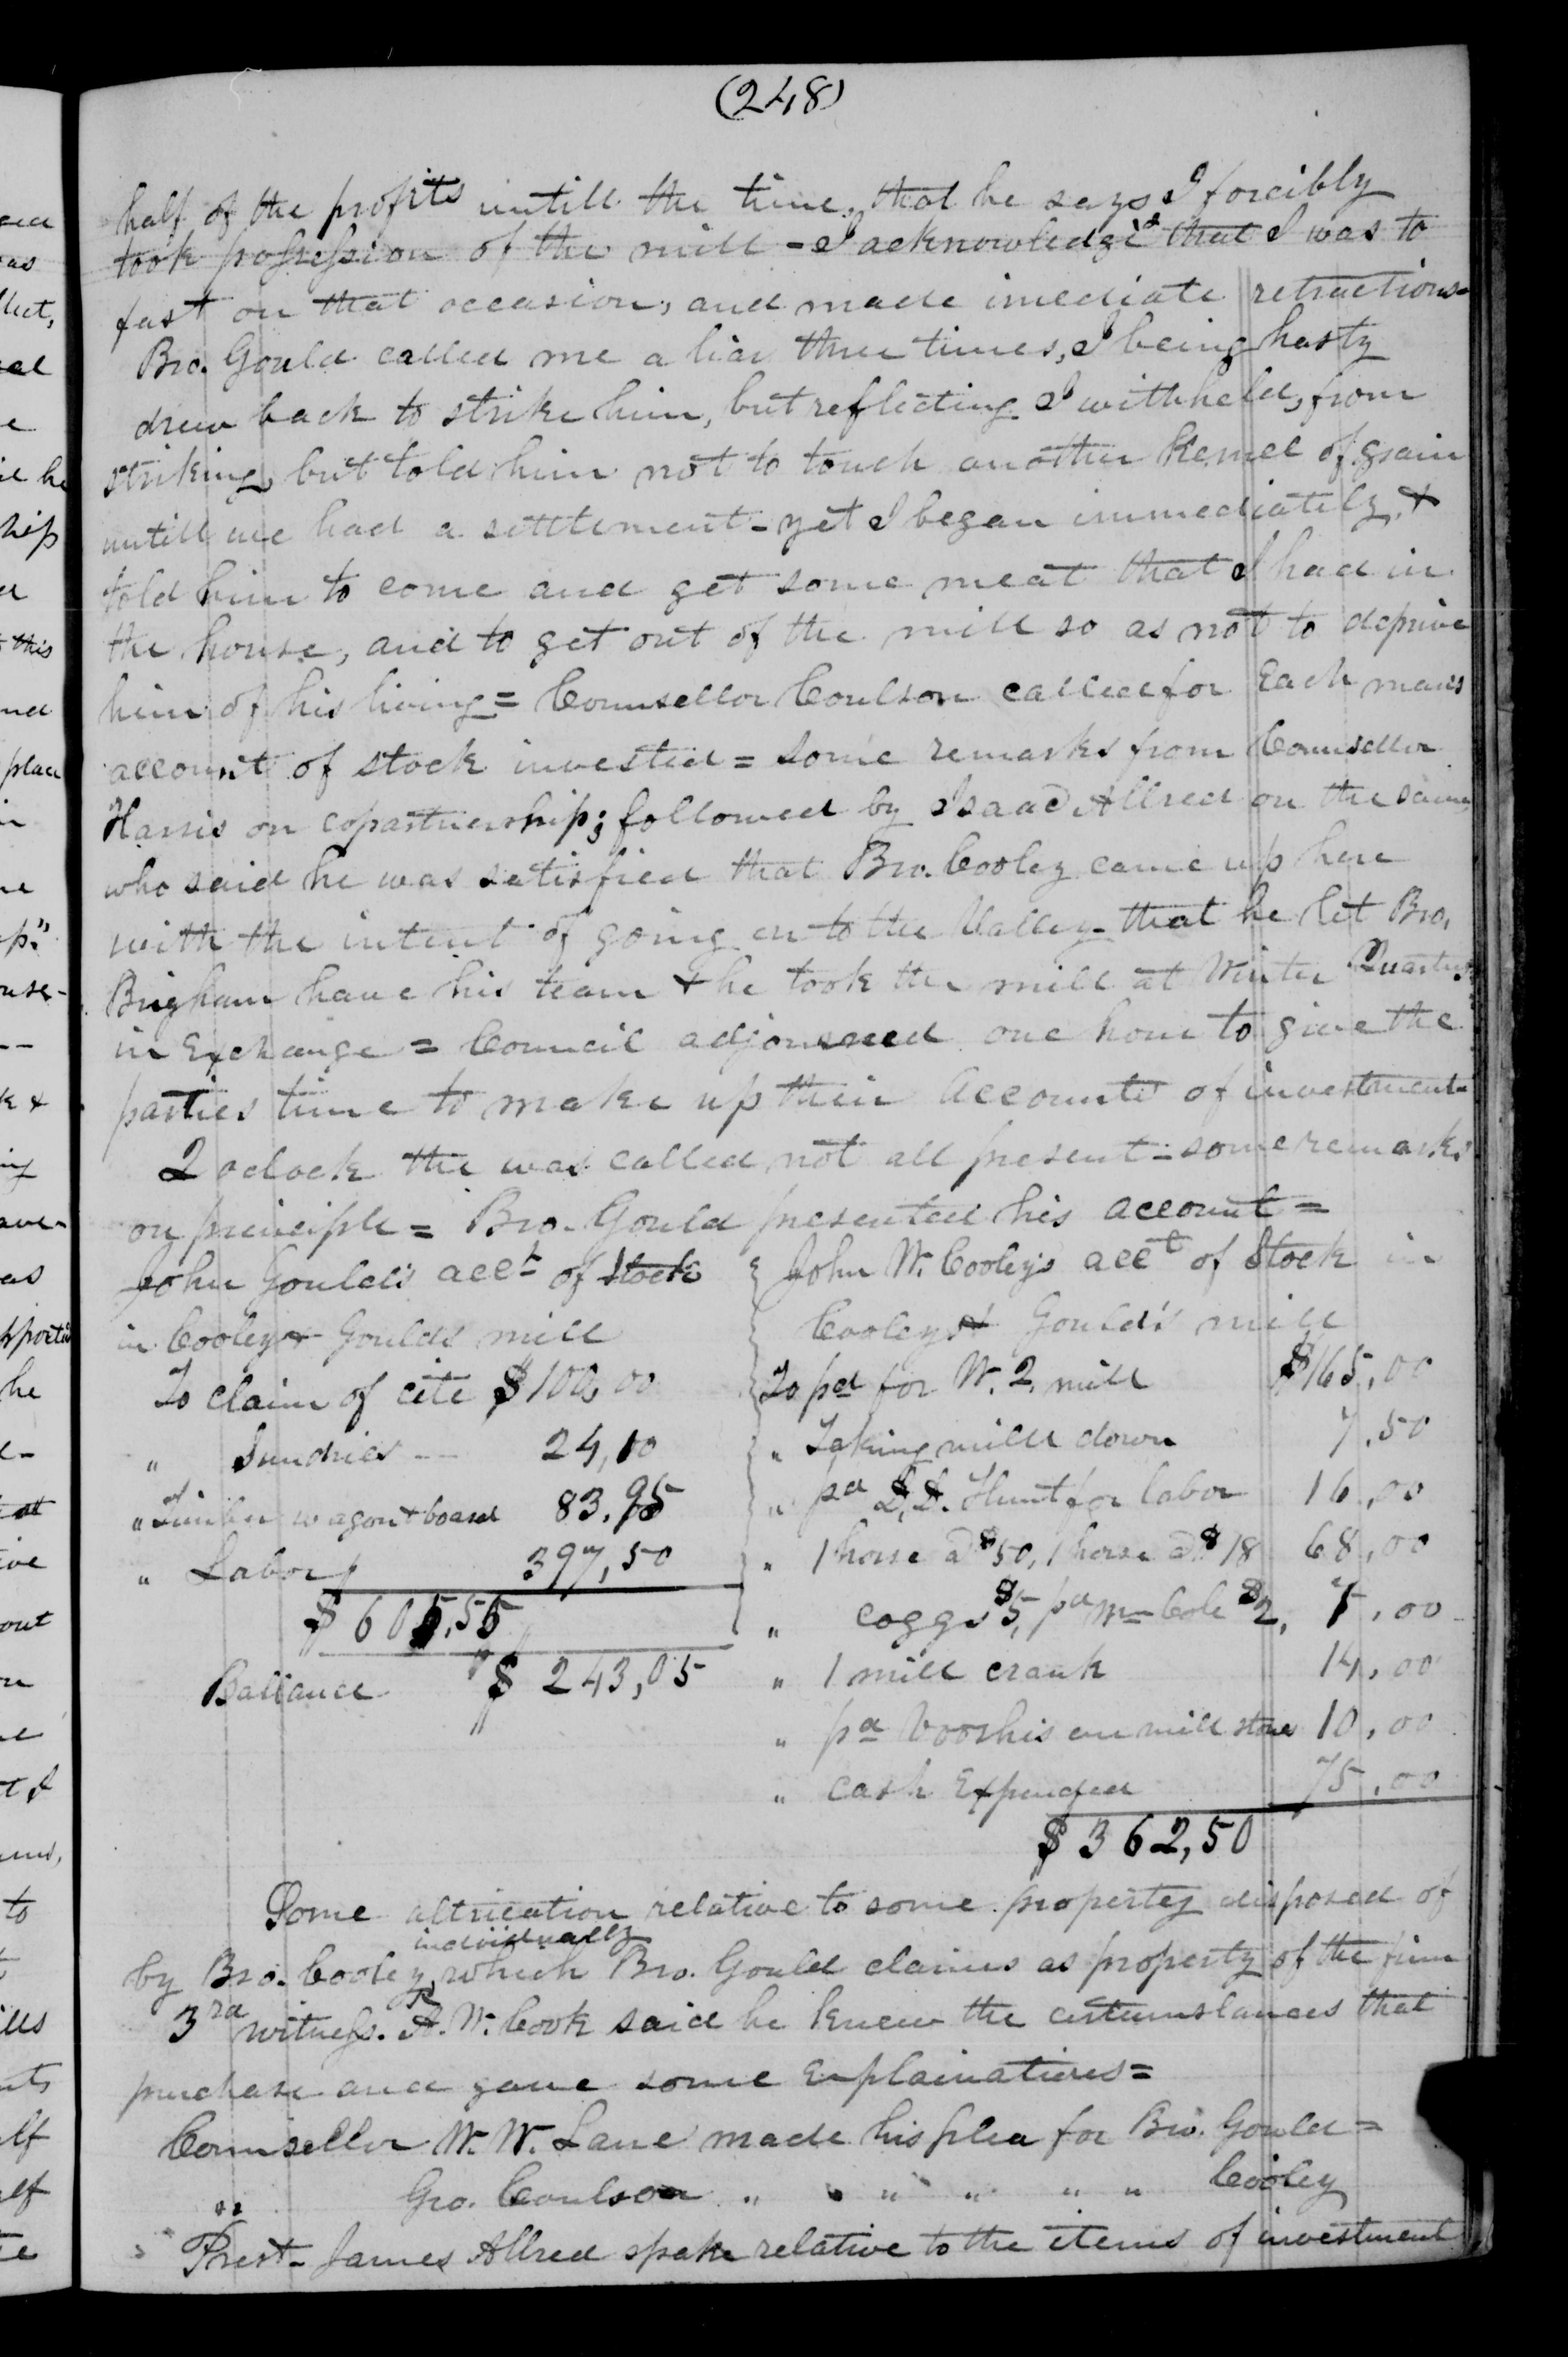 (248)
half of the profits untill the time, that he says I forcibly
took possession of the mill - I acknowledg'd that I was to
fast on that occasion, and made imediate retractions=
Bro. Gould called me a liar three times, I being hasty
drew back to strike him, but reflecting I withheld, from
striking, but told him not to touch another Kernel of grain
untill we had a settlement - yet I began immediately, &
told him to come and get some meat that I had in
the house, and to get out of the mill so as not to deprive
him of his living = Counsellor Coulson called for Each mans
account of stock invested = some remarks from Counsellor
Harris on copartnership; followed by Isaac Allred on the same
who said he was satisfied that Bro. Cooley came up here
with the intent of going on to the Valley - that he let Bro.
Brigham have his team & he took the mill at Winter Quarters
in Exchange = Council adjourned one hour to give the
parties time to make up their accounts of investment=
2 oclock the was called not all present = some remarks
on principle = Bro. Gould presented his account =
John Gould's acct of Stock
in Cooley & Goulds mill
To claim of cite $100,00
" Sundries -- 24,10
" Timber wagon & board 83.95
" Labor 397,50
$605,55
Ballance $243,05
John W. Cooley's acct of Stock in
Cooley & Gould's mill
To pd for W. Q. mill $165,00
" Taking mill down 7.50
" pd D,D. Hunt for labor 16,00
" 1 horse a $50, 1 horse a $18 68,00
" coggs $5, pd Mr Cole $2, 7,00
" 1 mill crank 14,00
" pd Voorhis on mill stones 10,00
" cash Expended 75,00
$362,50
Some altrication relative to some property disposed of
by Bro. Cooley individually which Bro. Gould claims as property of the firm
3rd witness. A. W. Cook said he knew the circumstances that
purchase and gave some Explainations=
Counsellor W. W. Lane made his plea for Bro. Gould=
" Geo. Coulson " " " " " " Cooley
Prest. James Allred spake relative to the items of investment